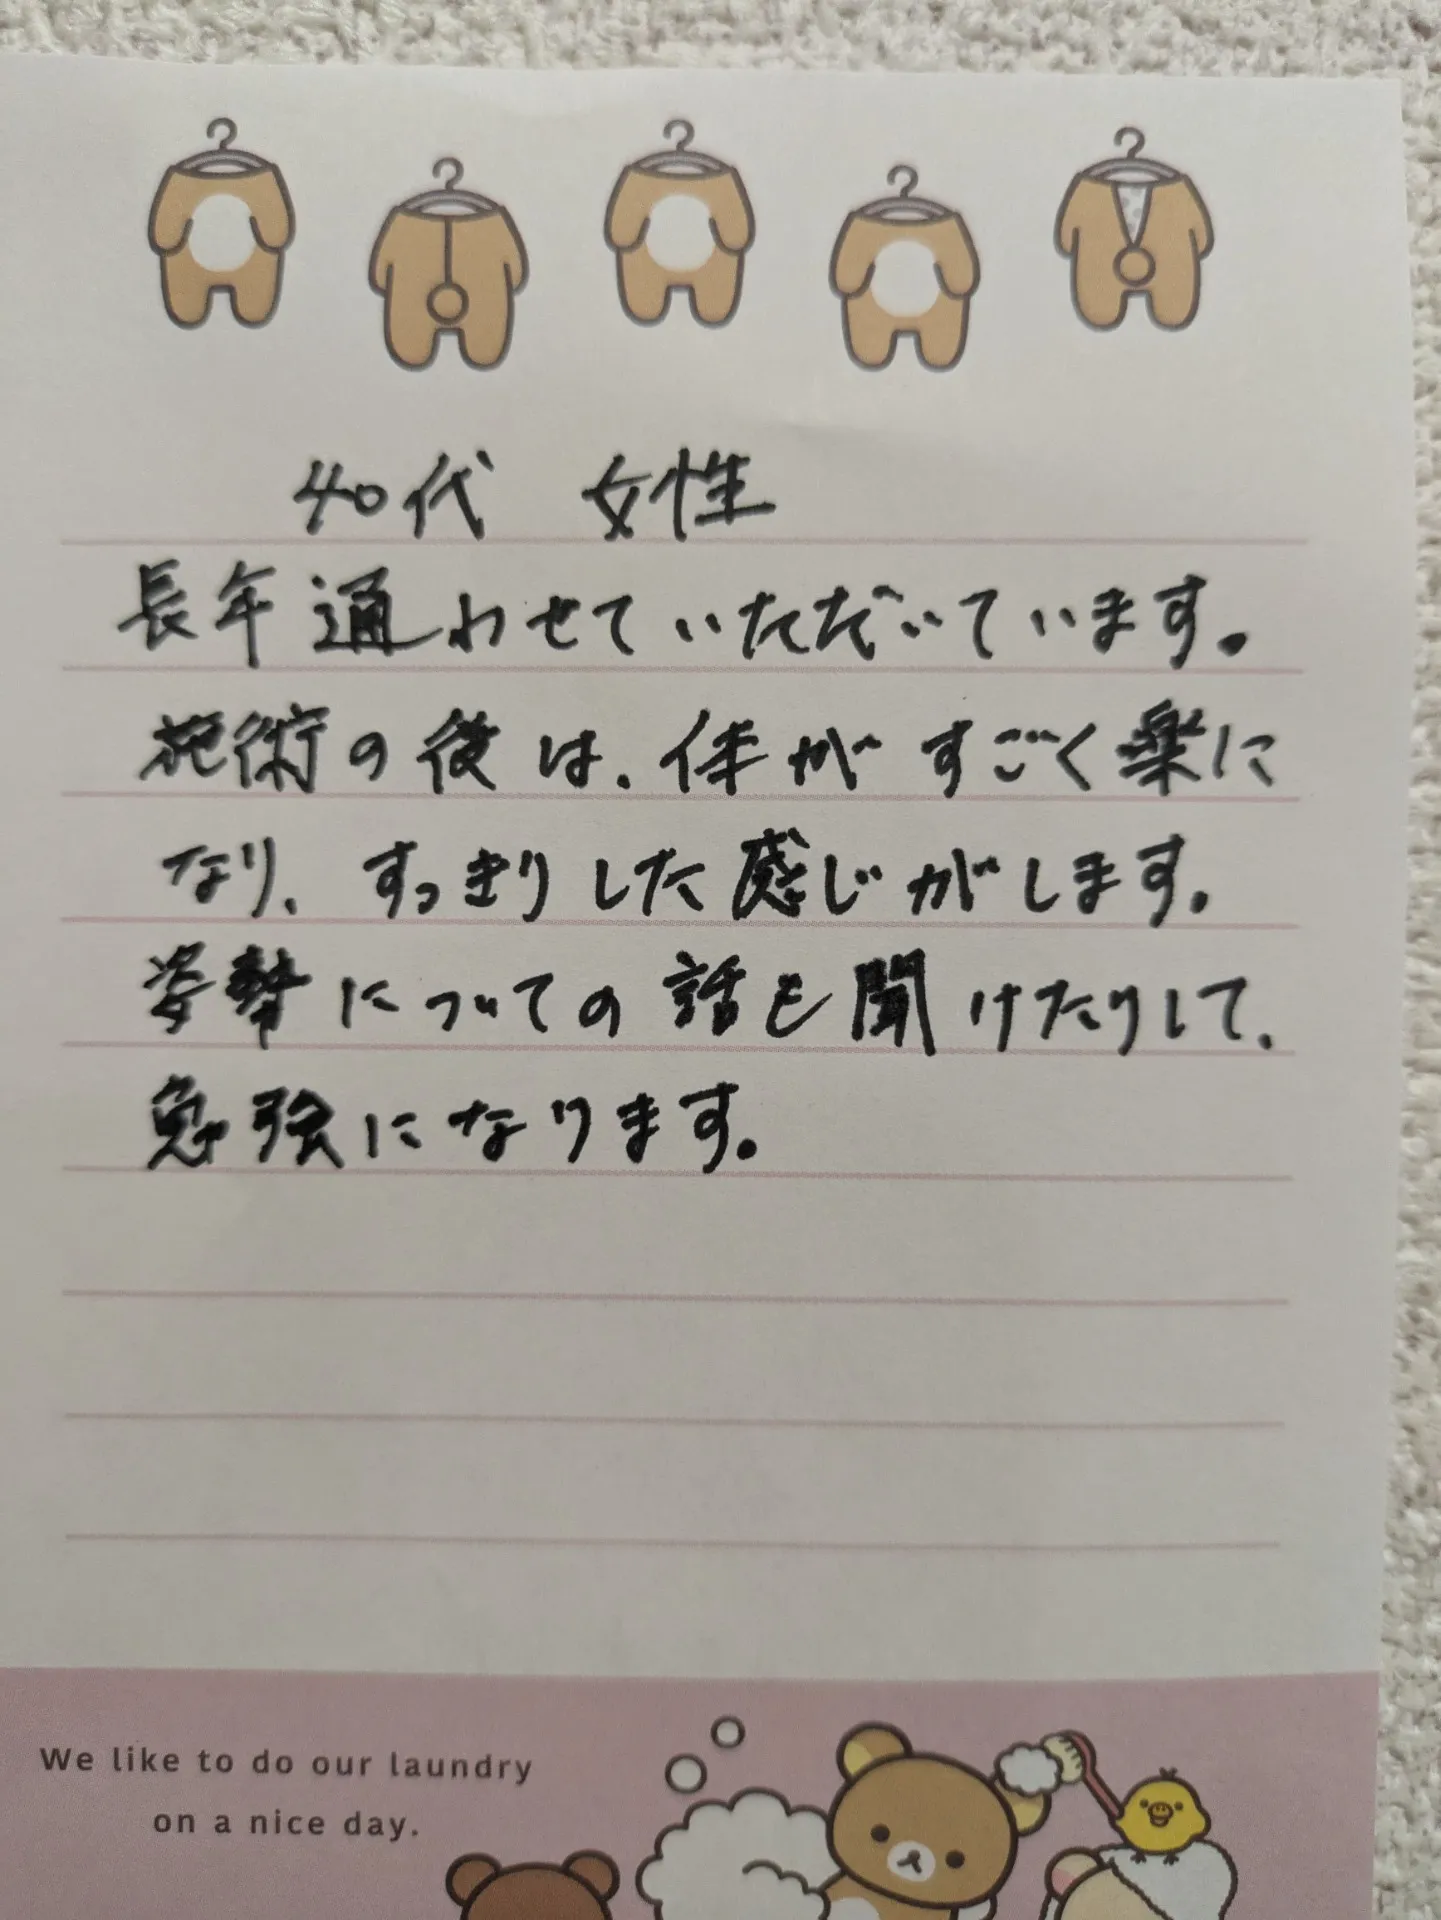 40代 女性
長年通わせていただいています。
施術の後は、体がすごく楽に
なり、すっきりした感じがします。
姿勢についての話も聞けたりして、
勉強になります。
We like to do our laundry
on a nice day.